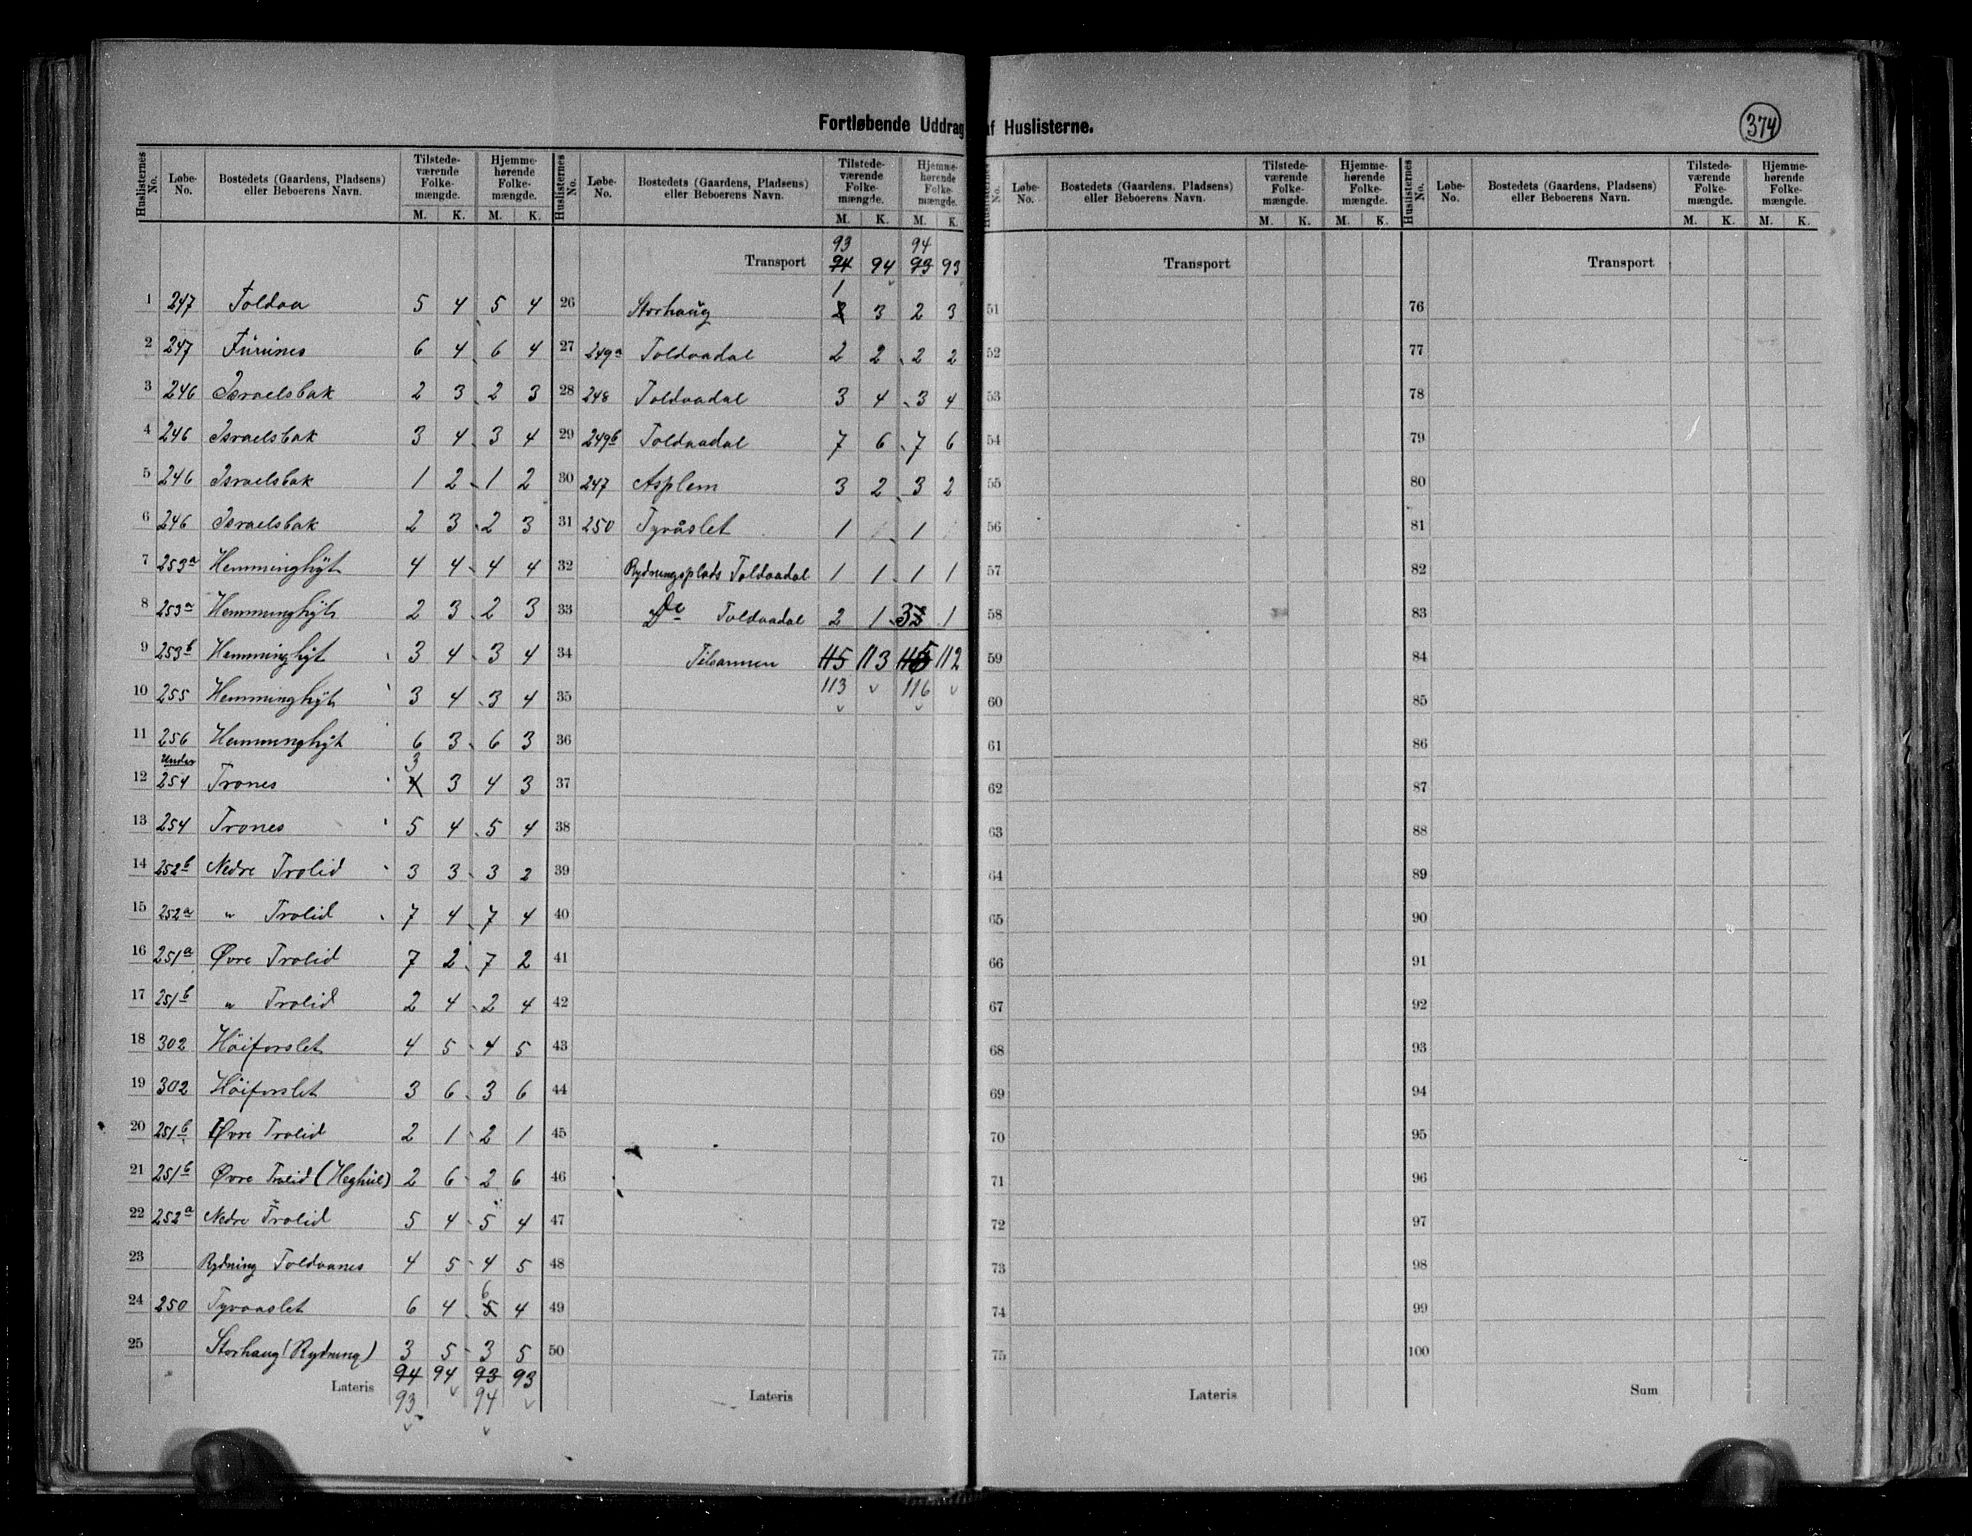 Fortløbende Uddrag af Huslisterne.
374
Huslisternes No. | Løbe-No. | Bostedets (Gaardens, Pladsens) eller Beboerens Navn. | Tilstedeværende Folkemængde. M. K. | Hjemmehørende Folkemængde. M. K.
1 247 Toldaa 5 4 5 4
2 247 Furunes 6 4 6 4
3 246 Israelsbak 2 3 2 3
4 246 Israelsbak 3 4 3 4
5 246 Israelsbak 1 2 1 2
6 246 Israelsbak 2 3 2 3
7 253a Hemminghyt 4 4 4 4
8 253a Hemminghyt 2 3 2 3
9 253b Hemminghyt 3 4 3 4
10 255 Hemminghyt 3 4 3 4
11 256 Hemminghyt 6 3 6 3
Under 3
12 254 Trones 4 3 4 3
13 254 Trones 5 4 5 4
14 252b Nedre Trolid 3 3 3 2
15 252a " Trolid 7 4 7 4
16 251a Øvre Trolid 7 2 7 2
17 251b " Trolid 2 4 2 4
18 302 Höiforslet 4 5 4 5
19 302 Höiforslet 3 6 3 6
20 251b Øvre Trolid 2 1 2 1
21 251b Øvre Trolid (Heghul) 2 6 2 6
22 252a Nedre Trolid 5 4 5 4
23 Rydning Toldaanes 4 5 4 5
6
24 250 Tyvaaslet 6 4 5 4
25 Storhaug (Rydning) 3 5 3 5
94 94 93 93
Lateris 93 94
Huslisternes No. | Løbe-No. | Bostedets (Gaardens, Pladsens) eller Beboerens Navn. | Tilstedeværende Folkemængde. M. K. | Hjemmehørende Folkemængde. M. K.
93 94
Transport 94 94 93 93
1
26 Storhaug 2 3 2 3
27 249a Toldaadal 2 2 2 2
28 248 Toldaadal 3 4 3 4
29 249b Toldaadal 7 6 7 6
30 247 Asplem 3 2 3 2
31 250 Tyvåslet 1 1
32 Rydningsplads Toldaadal 1 1 1 1
33 Do Toldaadal 2 1 3 1
34 Tilsammen 115 113 115 112
35 113 116
36
37
38
39
40
41
42
43
44
45
46
47
48
49
50
Lateris
Huslisternes No. | Løbe-No. | Bostedets (Gaardens, Pladsens) eller Beboerens Navn. | Tilstedeværende Folkemængde. M. K. | Hjemmehørende Folkemængde. M. K.
Transport
51
52
53
54
55
56
57
58
59
60
61
62
63
64
65
66
67
68
69
70
71
72
73
74
75
Lateris
Huslisternes No. | Løbe-No. | Bostedets (Gaardens, Pladsens) eller Beboerens Navn. | Tilstedeværende Folkemængde. M. K. | Hjemmehørende Folkemængde. M. K.
Transport
76
77
78
79
80
81
82
83
84
85
86
87
88
89
90
91
92
93
94
95
96
97
98
99
100
Sum